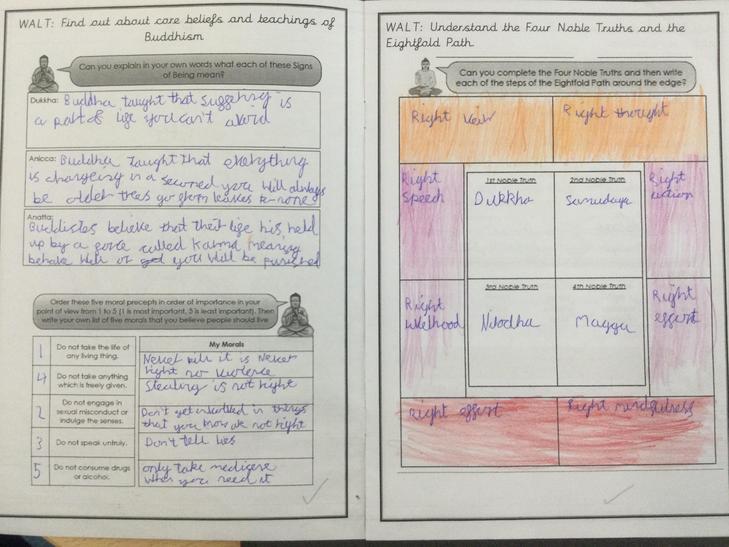 WALT: Find out about core beliefs and teachings of
Buddhism
Can you explain in your own words what each of these Signs
of Being mean?
Dukkha: Buddha taught that suggering is
a part of lige you can't avoid
Anicca: Buddha taught that everything
is changeing in a second you will always
be older trees
Anatta:
Buddistes believe that their lige his held
up by a gorce called Karma, meaning
behave well or you will be punished
Order these five moral precepts in order of importance in your
point of view from 1 to 5 (1 is most important, 5 is least important). Then
write your own list of five morals that you believe people should live
My Morals
1 Do not take the life of
any living thing.
Never kill it is Never
right no violence
4 Do not take anything
which is freely given.
Stealing is not right
2 Do not engage in
sexual misconduct or
indulge the senses.
Don't get in things
that you know ar not right
3 Do not speak untruly.
Don't tell lies
5 Do not consume drugs
or alcohol.
only take medicene
when you need it
WALT: Understand the Four Noble Truths and the
Eightfold Path.
Can you complete the Four Noble Truths and then write
each of the steps of the Eightfold Path around the edge?
Right Veiw
Right thought
Right
Speech
1st Noble Truth
Dukkha
2nd Noble Truth
Samudaya
Right
action
Right
3rd Noble Truth
Nirodha
4th Noble Truth
Magga
Right
effort
Right effort
Right mindfulness